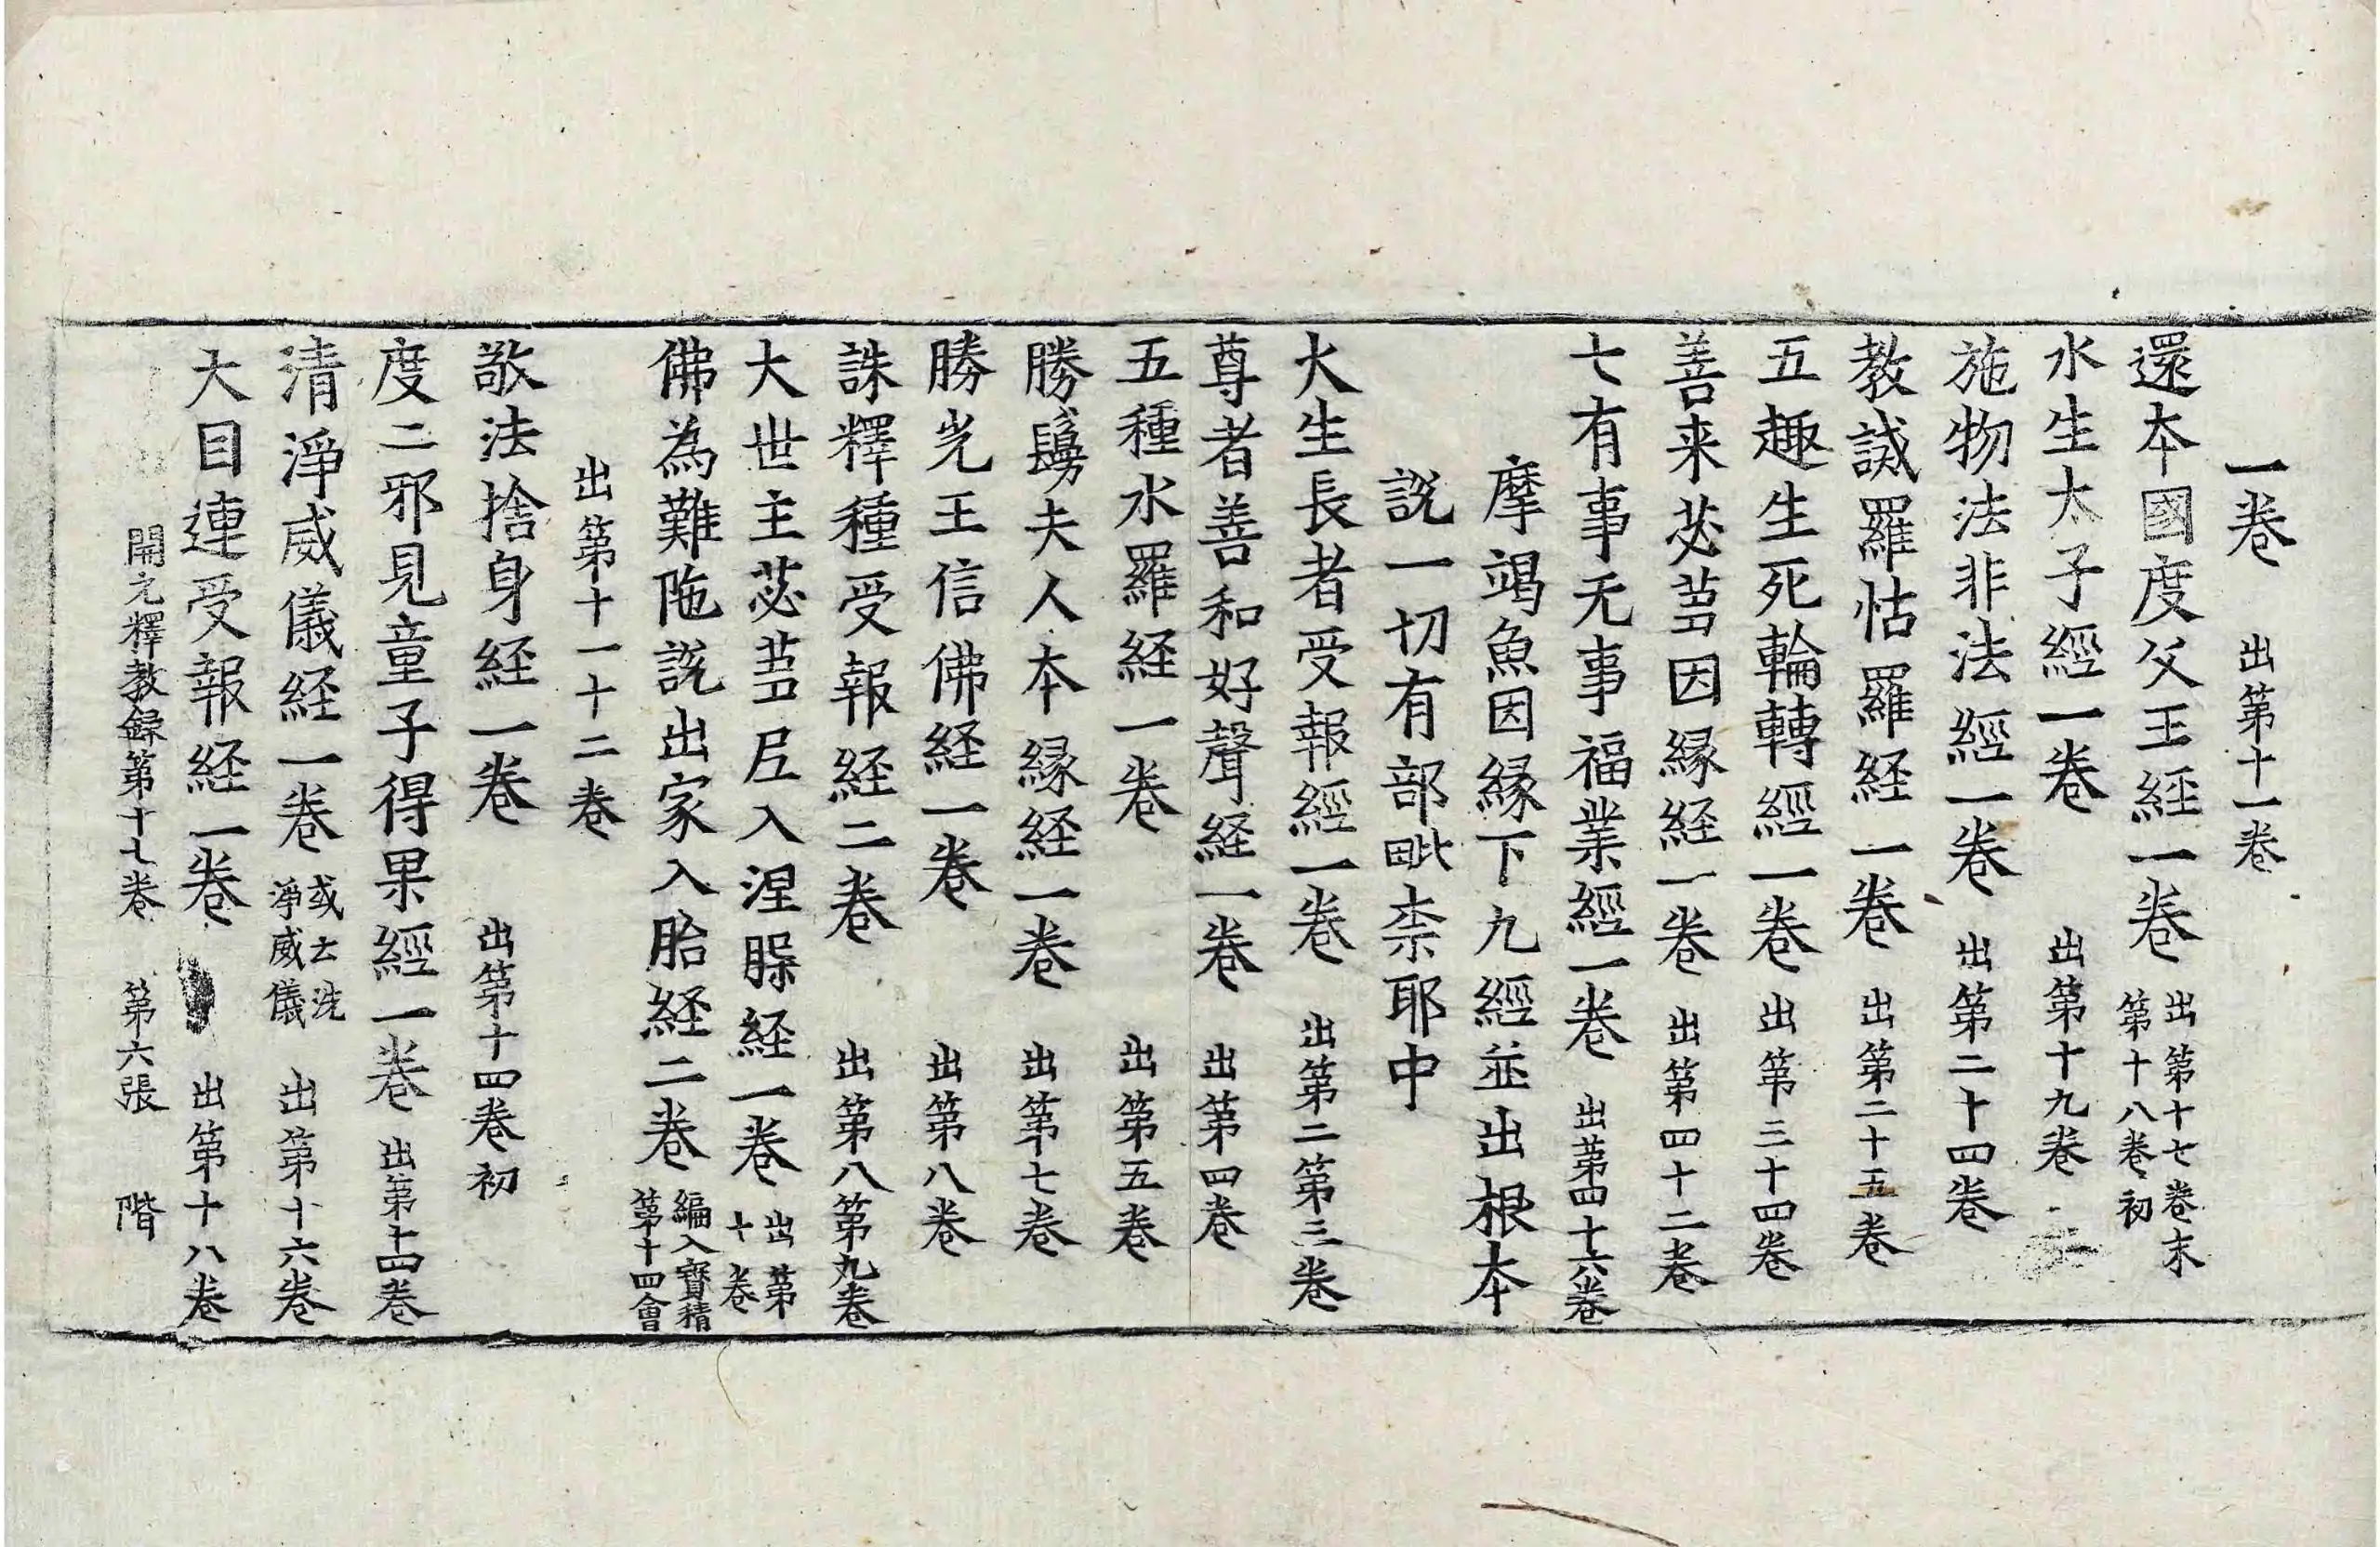 一卷 出第十一卷
還本國度父王經一卷 出第十七卷末第十八卷初
水生太子經一卷 出第十九卷
施物法非法經一卷 出第二十四卷
教誡羅怙羅経一卷 出第二十五卷
五趣生死輪轉經一卷 出第三十四卷
善来苾蒭因縁経一卷 出第四十二卷
七有事无事福業經一卷 出第四十六卷
摩竭魚因縁下九經並出根本
說一切有部毗柰耶中
火生長者受報經一卷 出第二第三卷
尊者善和好聲経一卷 出第四卷
五種水羅経一卷 出第五卷
勝鬘夫人本縁経一卷 出第七卷
勝光王信佛経一卷 出第八卷
誅釋種受報経二卷 出第八第九卷
大世主苾蒭尼入涅槃経一卷 出第十卷
佛為難陁說出家入胎経二卷 編入寶積第十四會
出第十一十二卷
敬法捨身経一卷 出第十四卷初
度二邪見童子得果經一卷 出第十四卷
清淨威儀経一卷 或云洗淨威儀 出第十六卷
大目連受報経一卷 出第十八卷
開元釋教録第十七卷 第六張 階